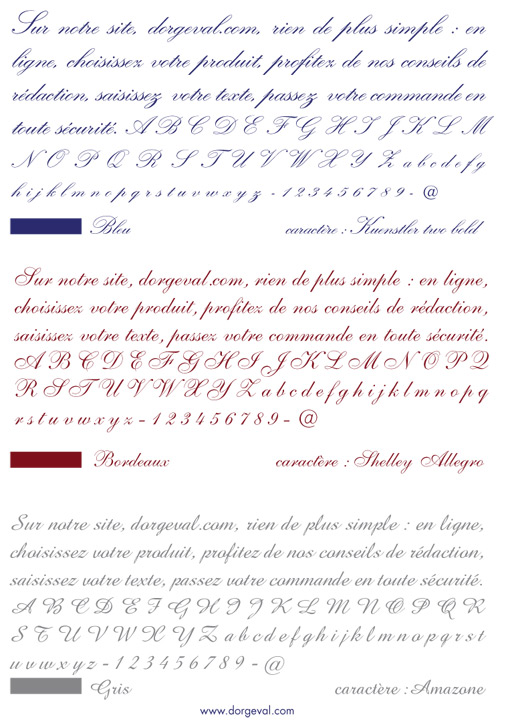 Sur notre site, dorgeval.com, rien de plus simple : en
ligne, choisissez votre produit, profitez de nos conseils de
rédaction, saisissez votre texte, passez votre commande en
toute sécurité. A B C D E F G H I J K L M
N O P Q R S T U V W X Y Z a b c d e f g
h i j k l m n o p q r s t u v w x y z - 1 2 3 4 5 6 7 8 9 - @
Bleu caractère : Kuenstler two bold
Sur notre site, dorgeval.com, rien de plus simple : en ligne,
choisissez votre produit, profitez de nos conseils de rédaction,
saisissez votre texte, passez votre commande en toute sécurité.
A B C D E F G H I J K L M N O P Q
R S T U V W X Y Z a b c d e f g h i j k l m n o p q
r s t u v w x y z - 1 2 3 4 5 6 7 8 9 - @
Bordeaux caractère : Shelley Allegro
Sur notre site, dorgeval.com, rien de plus simple : en ligne,
choisissez votre produit, profitez de nos conseils de rédaction,
saisissez votre texte, passez votre commande en toute sécurité.
A B C D E F G H I J K L M N O P Q R
S T U V W X Y Z a b c d e f g h i j k l m n o p q r s t
u v w x y z - 1 2 3 4 5 6 7 8 9 - @
Gris caractère : Amazone
www.dorgeval.com